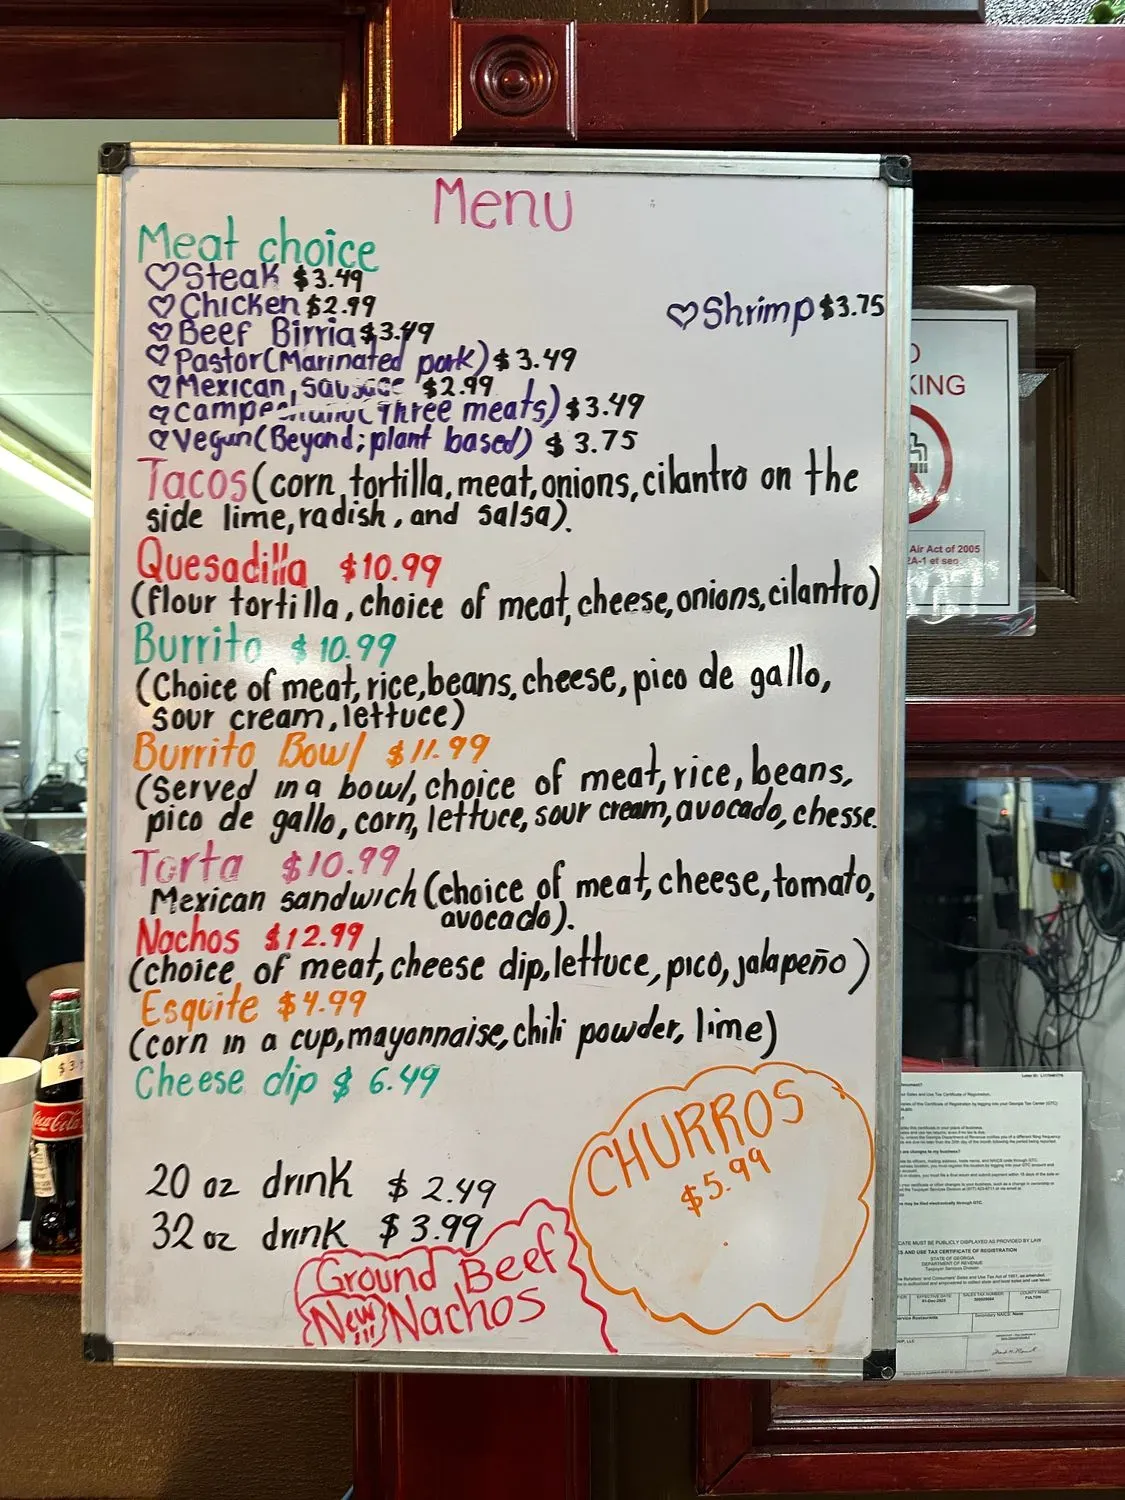 Menu
Meat choice
Steak $3.49
Chicken $2.99
Shrimp $3.75
Beef Birria $3.49
Pastor (Marinated pork) $3.49
Mexican, sausage $2.99
(Three meats) $3.49
Vegan (Beyond; plant based) $3.75
Tacos (corn, tortilla, meat, onions, cilantro on the
side lime, radish, and salsa).
Quesadilla $10.99
(flour tortilla, choice of meat, cheese, onions, cilantro)
Burrito $10.99
(Choice of meat, rice, beans, cheese, pico de gallo,
sour cream, lettuce)
Burrito Bowl $11.99
(Served in a bowl, choice of meat, rice, beans,
pico de gallo, corn, lettuce, sour cream, avocado, chesse.
Torta $10.99
Mexican sandwich (choice of meat, cheese, tomato,
avocado).
Nachos $12.99
(choice of meat, cheese dip, lettuce, pico, jalapeño)
Esquite $4.99
(corn in a cup, mayonnaise, chili powder, lime)
Cheese dip $6.49
CHURROS
$5.99
20 oz drink $2.49
32 oz drink $3.99
Ground Beef
New!!! Nachos
KING
Air Act of 2005
Coca-Cola
CATE MUST BE PUBLICLY DISPLAYED AS PROVIDED BY LAW
STATE OF GEORGIA
DEPARTMENT OF REVENUE
Taxpayer Services Division